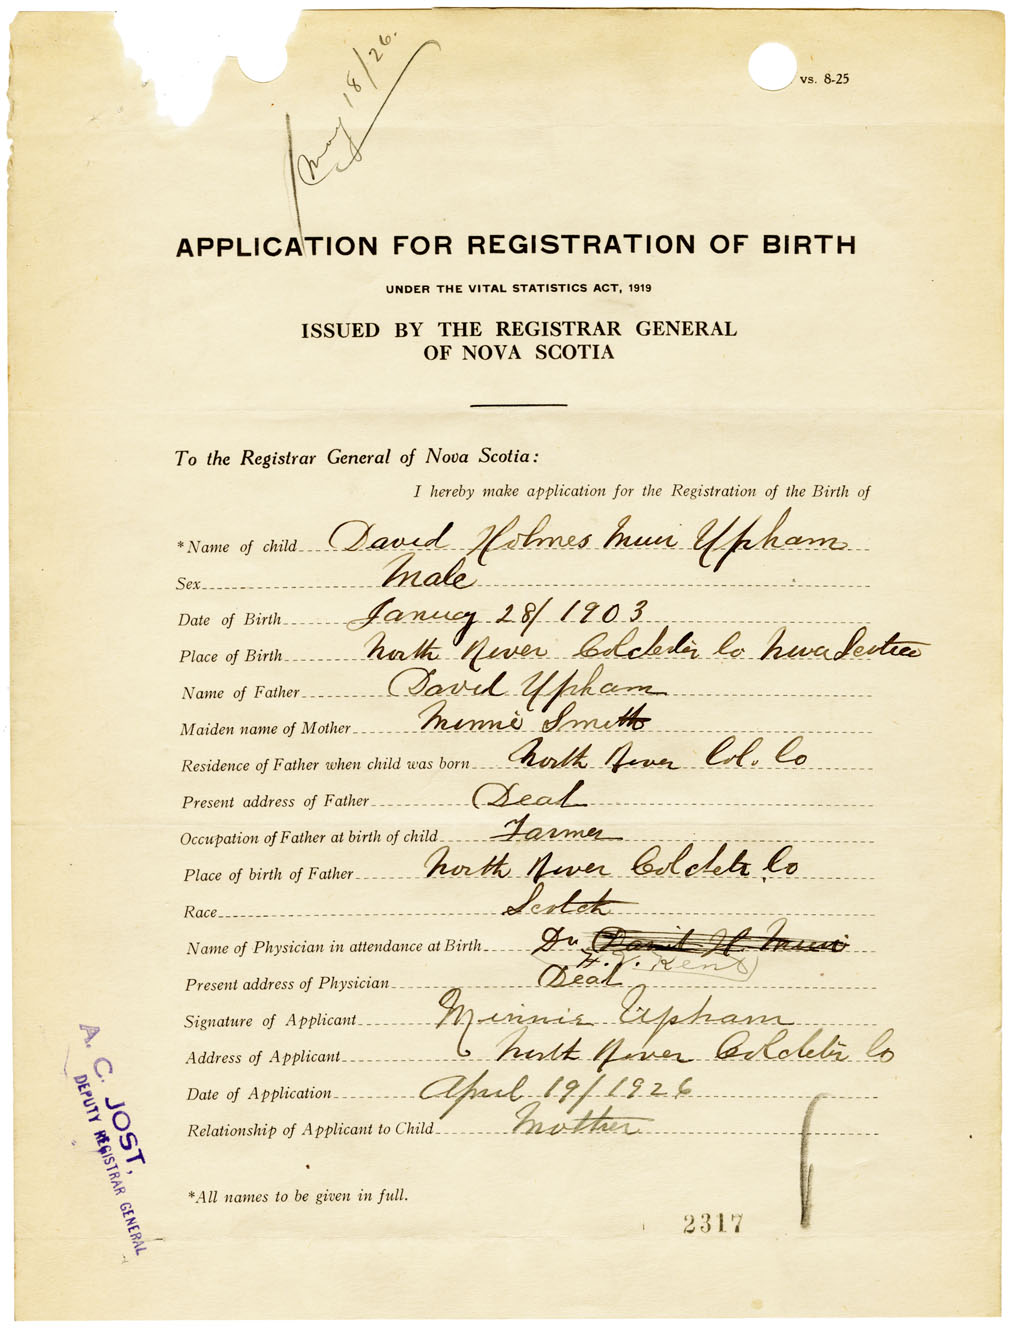 May 18/26.
vs. 8-25
APPLICATION FOR REGISTRATION OF BIRTH
UNDER THE VITAL STATISTICS ACT, 1919
ISSUED BY THE REGISTRAR GENERAL
OF NOVA SCOTIA
To the Registrar General of Nova Scotia:
I hereby make application for the Registration of the Birth of
*Name of child David Holmes Muir Upham
Sex Male
Date of Birth January 28/1903
Place of Birth North River Colchester Co Nova Scotia
Name of Father David Upham
Maiden name of Mother Minnie Smith
Residence of Father when child was born North River Col. Co
Present address of Father Dead
Occupation of Father at birth of child Farmer
Place of birth of Father North River Colchester Co
Race Scotch
Name of Physician in attendance at Birth Dr David H. Muir
H. V. Kent
Present address of Physician Dead
Signature of Applicant Minnie Upham
Address of Applicant North River Colchester Co
Date of Application April 19/1926
Relationship of Applicant to Child Mother
A. C. JOST,
DEPUTY REGISTRAR GENERAL
*All names to be given in full.
2317